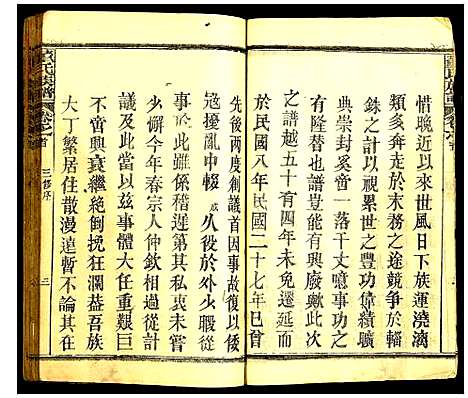 惜晚近以來世風日下族運澆漓
類多奔走於末務之途競爭於輜
銖之計以視累世之豐功偉績曠
典崇封奚啻一落千丈噫事功之
有隆替也譜豈能有興廢歟此次
之譜越五十有四年未遑延而
於民國八年民國二十七年已首
先後兩度創議首因事故復以倭
寇擾亂中輟或人役於外少暇從
事於此雖係稽遲第其私衷未嘗
少懈今年春宗人仲欽相過從計
議及此當以茲事體大任重艱巨
不啻興衰繼絕倒挽狂瀾葢吾族
大丁繁居住散漫遠暫不論其在
氏族譜
卷之首
三修序
二